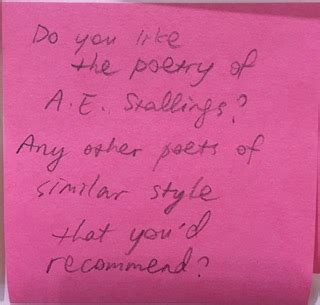 Do you like
the poetry of
A.E. Stallings?
Any other poets of
similar style
that you'd
recommend?